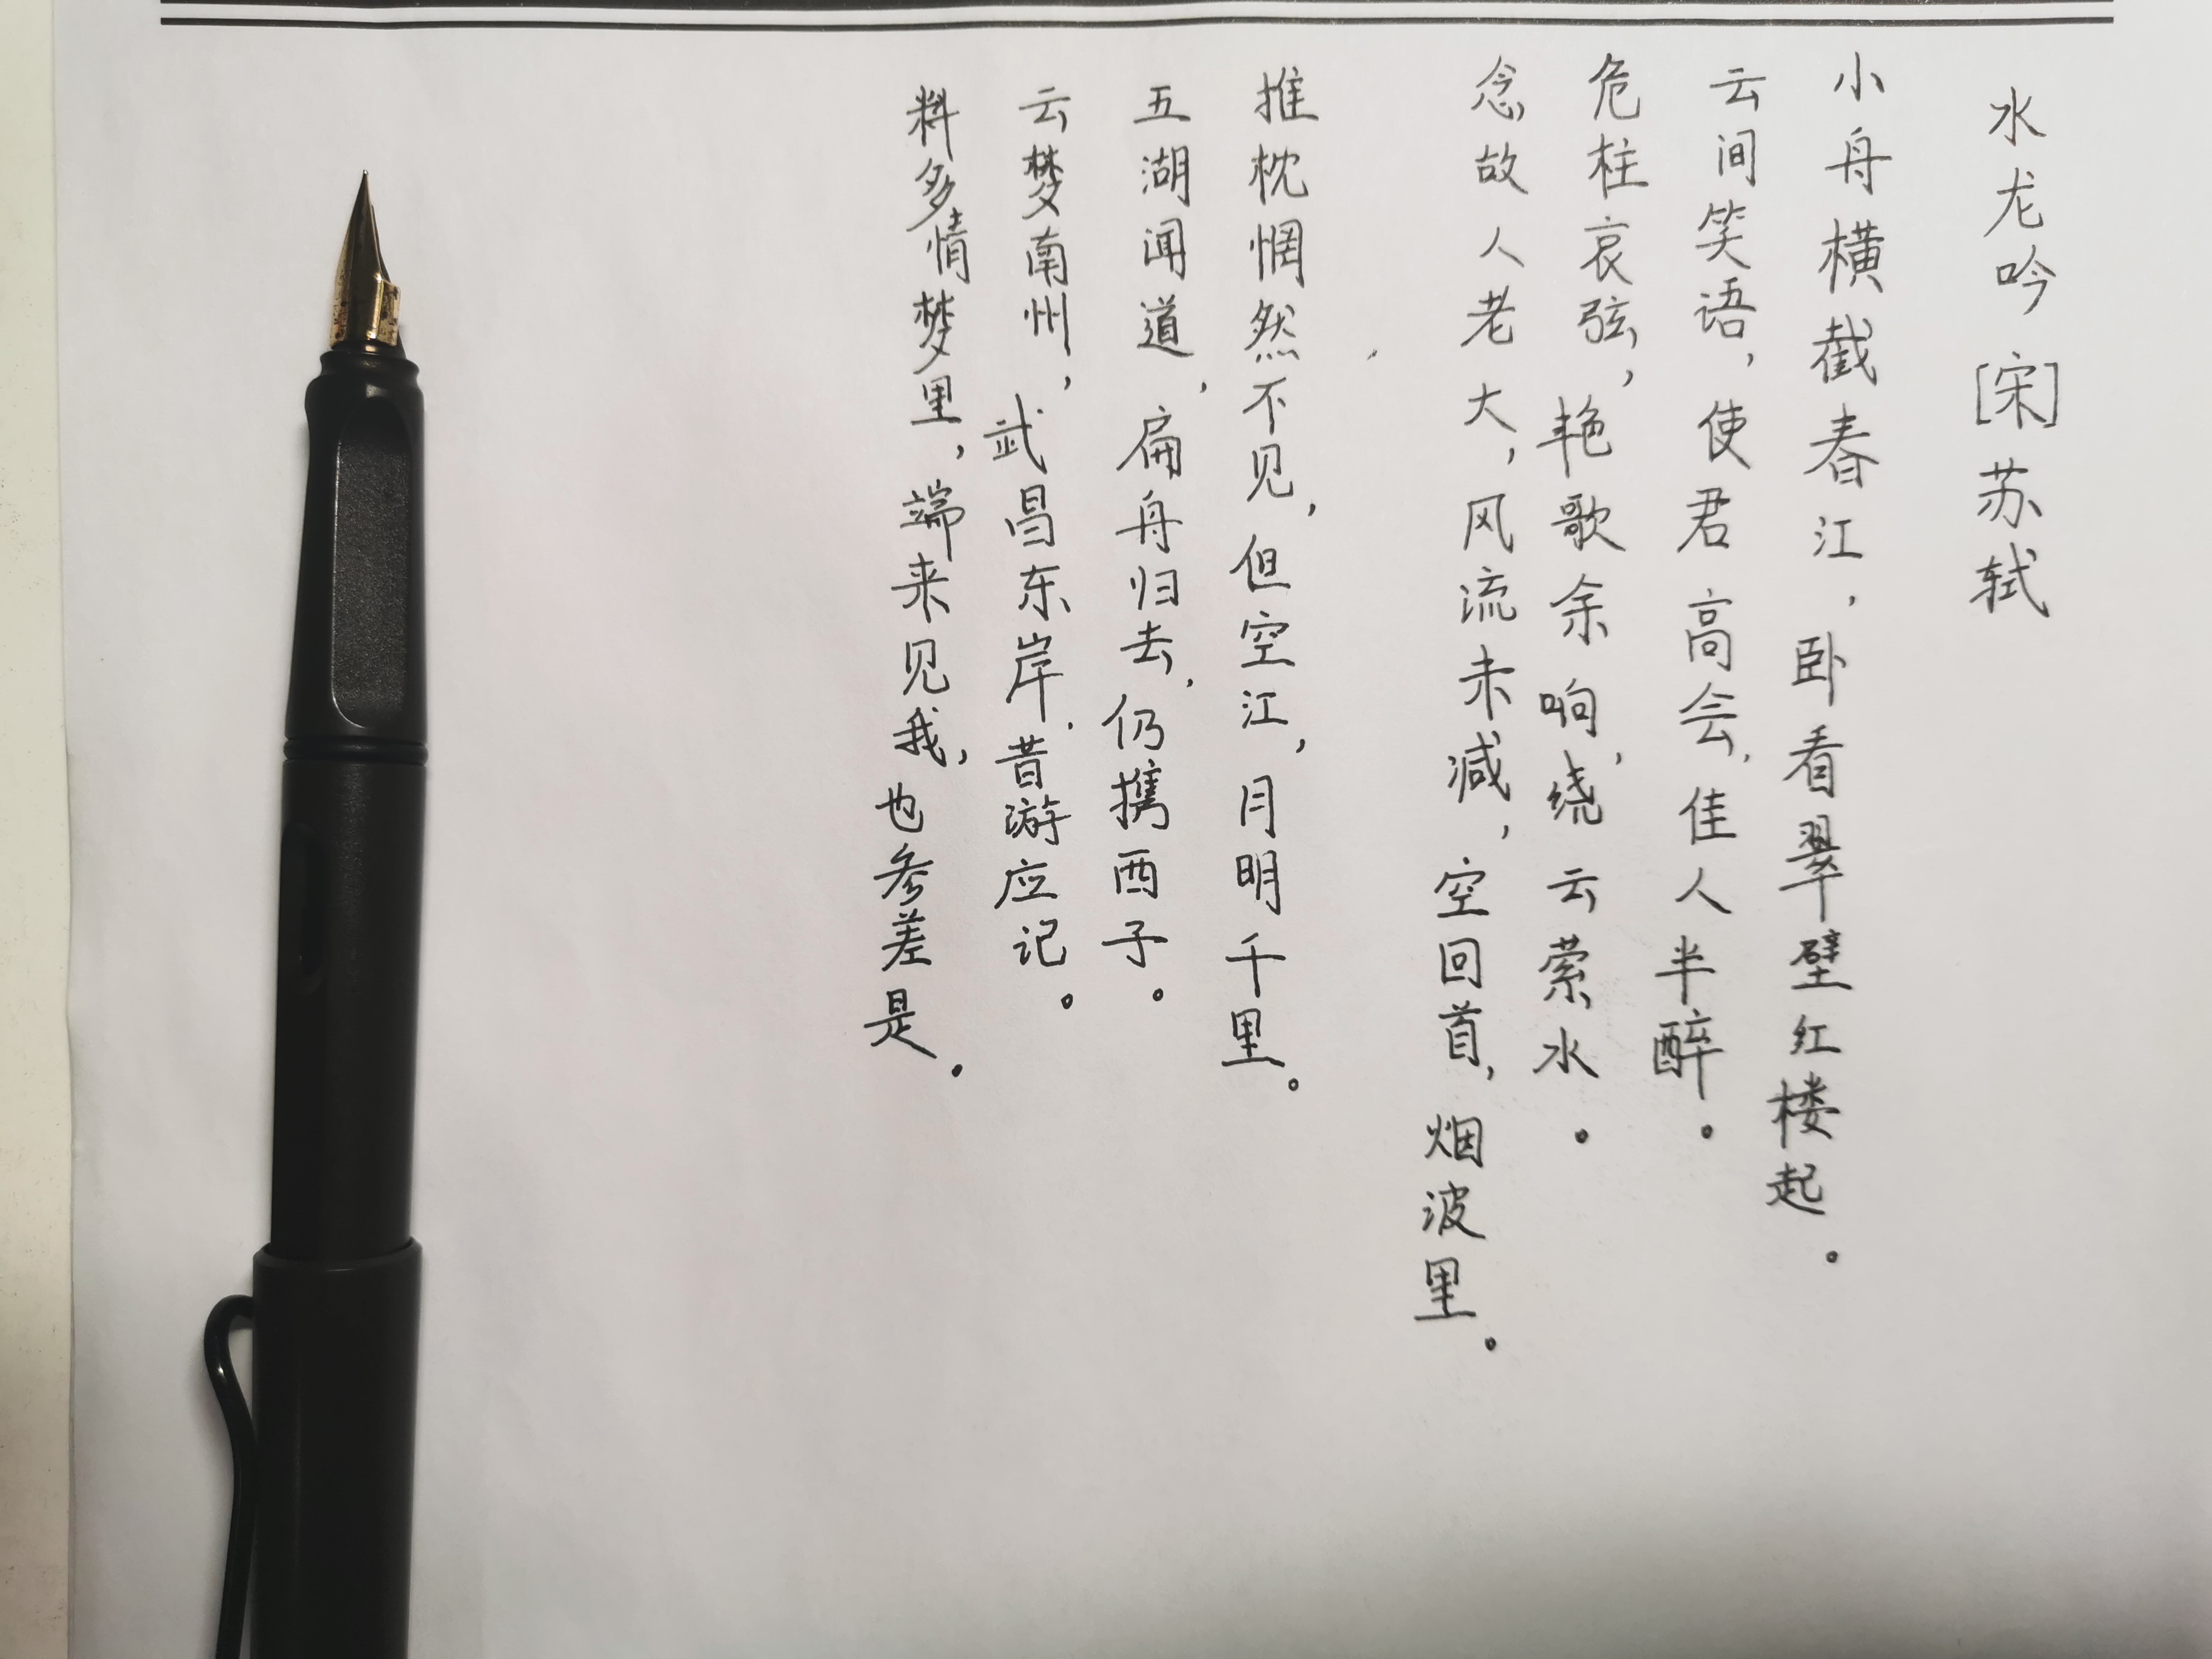 水龙吟 [宋] 苏轼
小舟横截春江，卧看翠壁红楼起。
云间笑语，使君高会，佳人半醉。
危柱哀弦，艳歌余响，绕云萦水。
念故人老大，风流未减，空回首，烟波里。
推枕惘然不见，但空江，月明千里。
五湖闻道，扁舟归去，仍携西子。
云梦南州，武昌东岸，昔游应记。
料多情梦里，端来见我，也参差是。